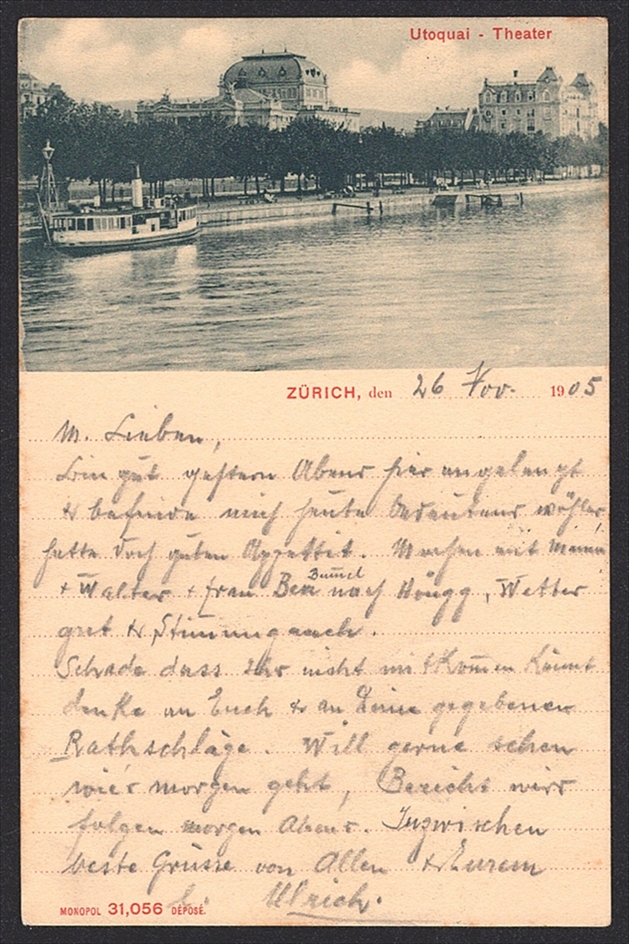 Utoquai - Theater
ZÜRICH, den 26 Nov. 1905
M. Lieben,
Bin gut gestern Abend hier angelangt
& befinde mich heute bedeutend wöhler,
hatte doch guten Appettit. Machen mit Mama
+ Walter + Frau Bumel nach Höngg, Wetter
gut & Stimmung auch.
Schade dass Ihr nicht mitkommen könnt
denke an Euch & an Deine gegebenen
Rathschläge. Will gerne sehen
wie's morgen geht, Bericht wird
folgen morgen Abend. Inzwischen
beste Grüsse von Allen & Eurem
Ulrich.
MONOPOL 31,056 DÉPOSÉ.